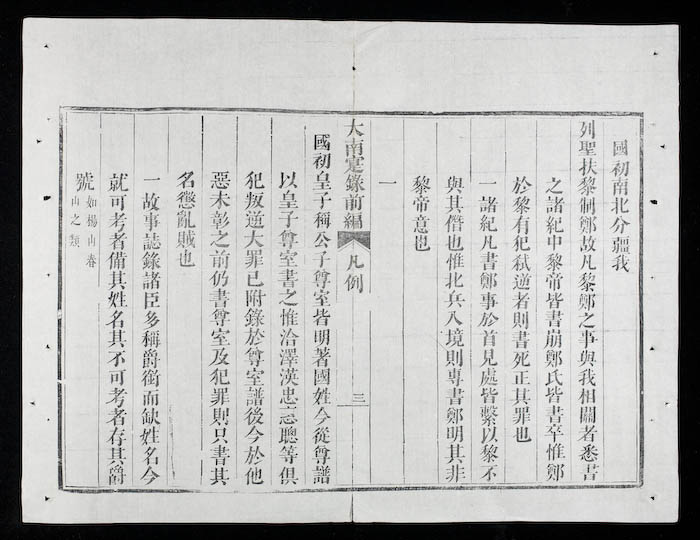 國初南北分疆我
列聖扶黎制鄭故凡黎鄭之事與我相關者悉書
之諸紀中黎帝皆書崩鄭氏皆書卒惟鄭
於黎有犯弒逆者則書死正其罪也
一諸紀凡書鄭事於首見處皆繫以黎不
與其僭也惟北兵入境則專書鄭明其非
黎帝意也
一
大南寔錄前編 凡例 三
國初皇子稱公子尊室皆明著國姓今從尊譜
以皇子尊室書之惟洽澤漢忠聰等俱
犯叛逆大罪已附錄於尊室譜後今於他
惡未彰之前仍書尊室及犯罪則只書其
名懲亂賊也
一故事誌錄諸臣多稱爵銜而缺姓名今
就可考者備其姓名其不可考者存其爵
號
如楊山春
山之類